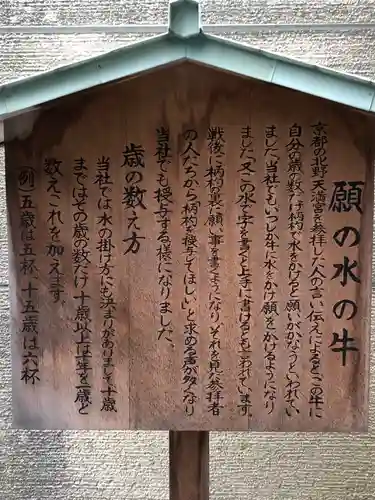 願の水の牛
京都の北野天満宮を参拝した人の言い伝えによるとこの牛に
自分の歳の数だけ柄杓で水をかけると願いがかなうといわれてい
ました当社でもいつしか牛に水をかけ願をかけるようになり
ました「又この水で字を書くと上手に書けるとも言われています。
戦後に柄杓の裏へ願い事を書くようになりそれを見た参拝者
の人たちから柄杓を授与てほしいと求める声が多くなり
当社でも授与する様になりました。
歳の数え方
当社では水の掛け方にも決まりがありまして、十歳
まではその歳の数だけ十歳以上は十年を一歳と
数えこれを加えます。
(例)五歳は五杯、十五歳は六杯